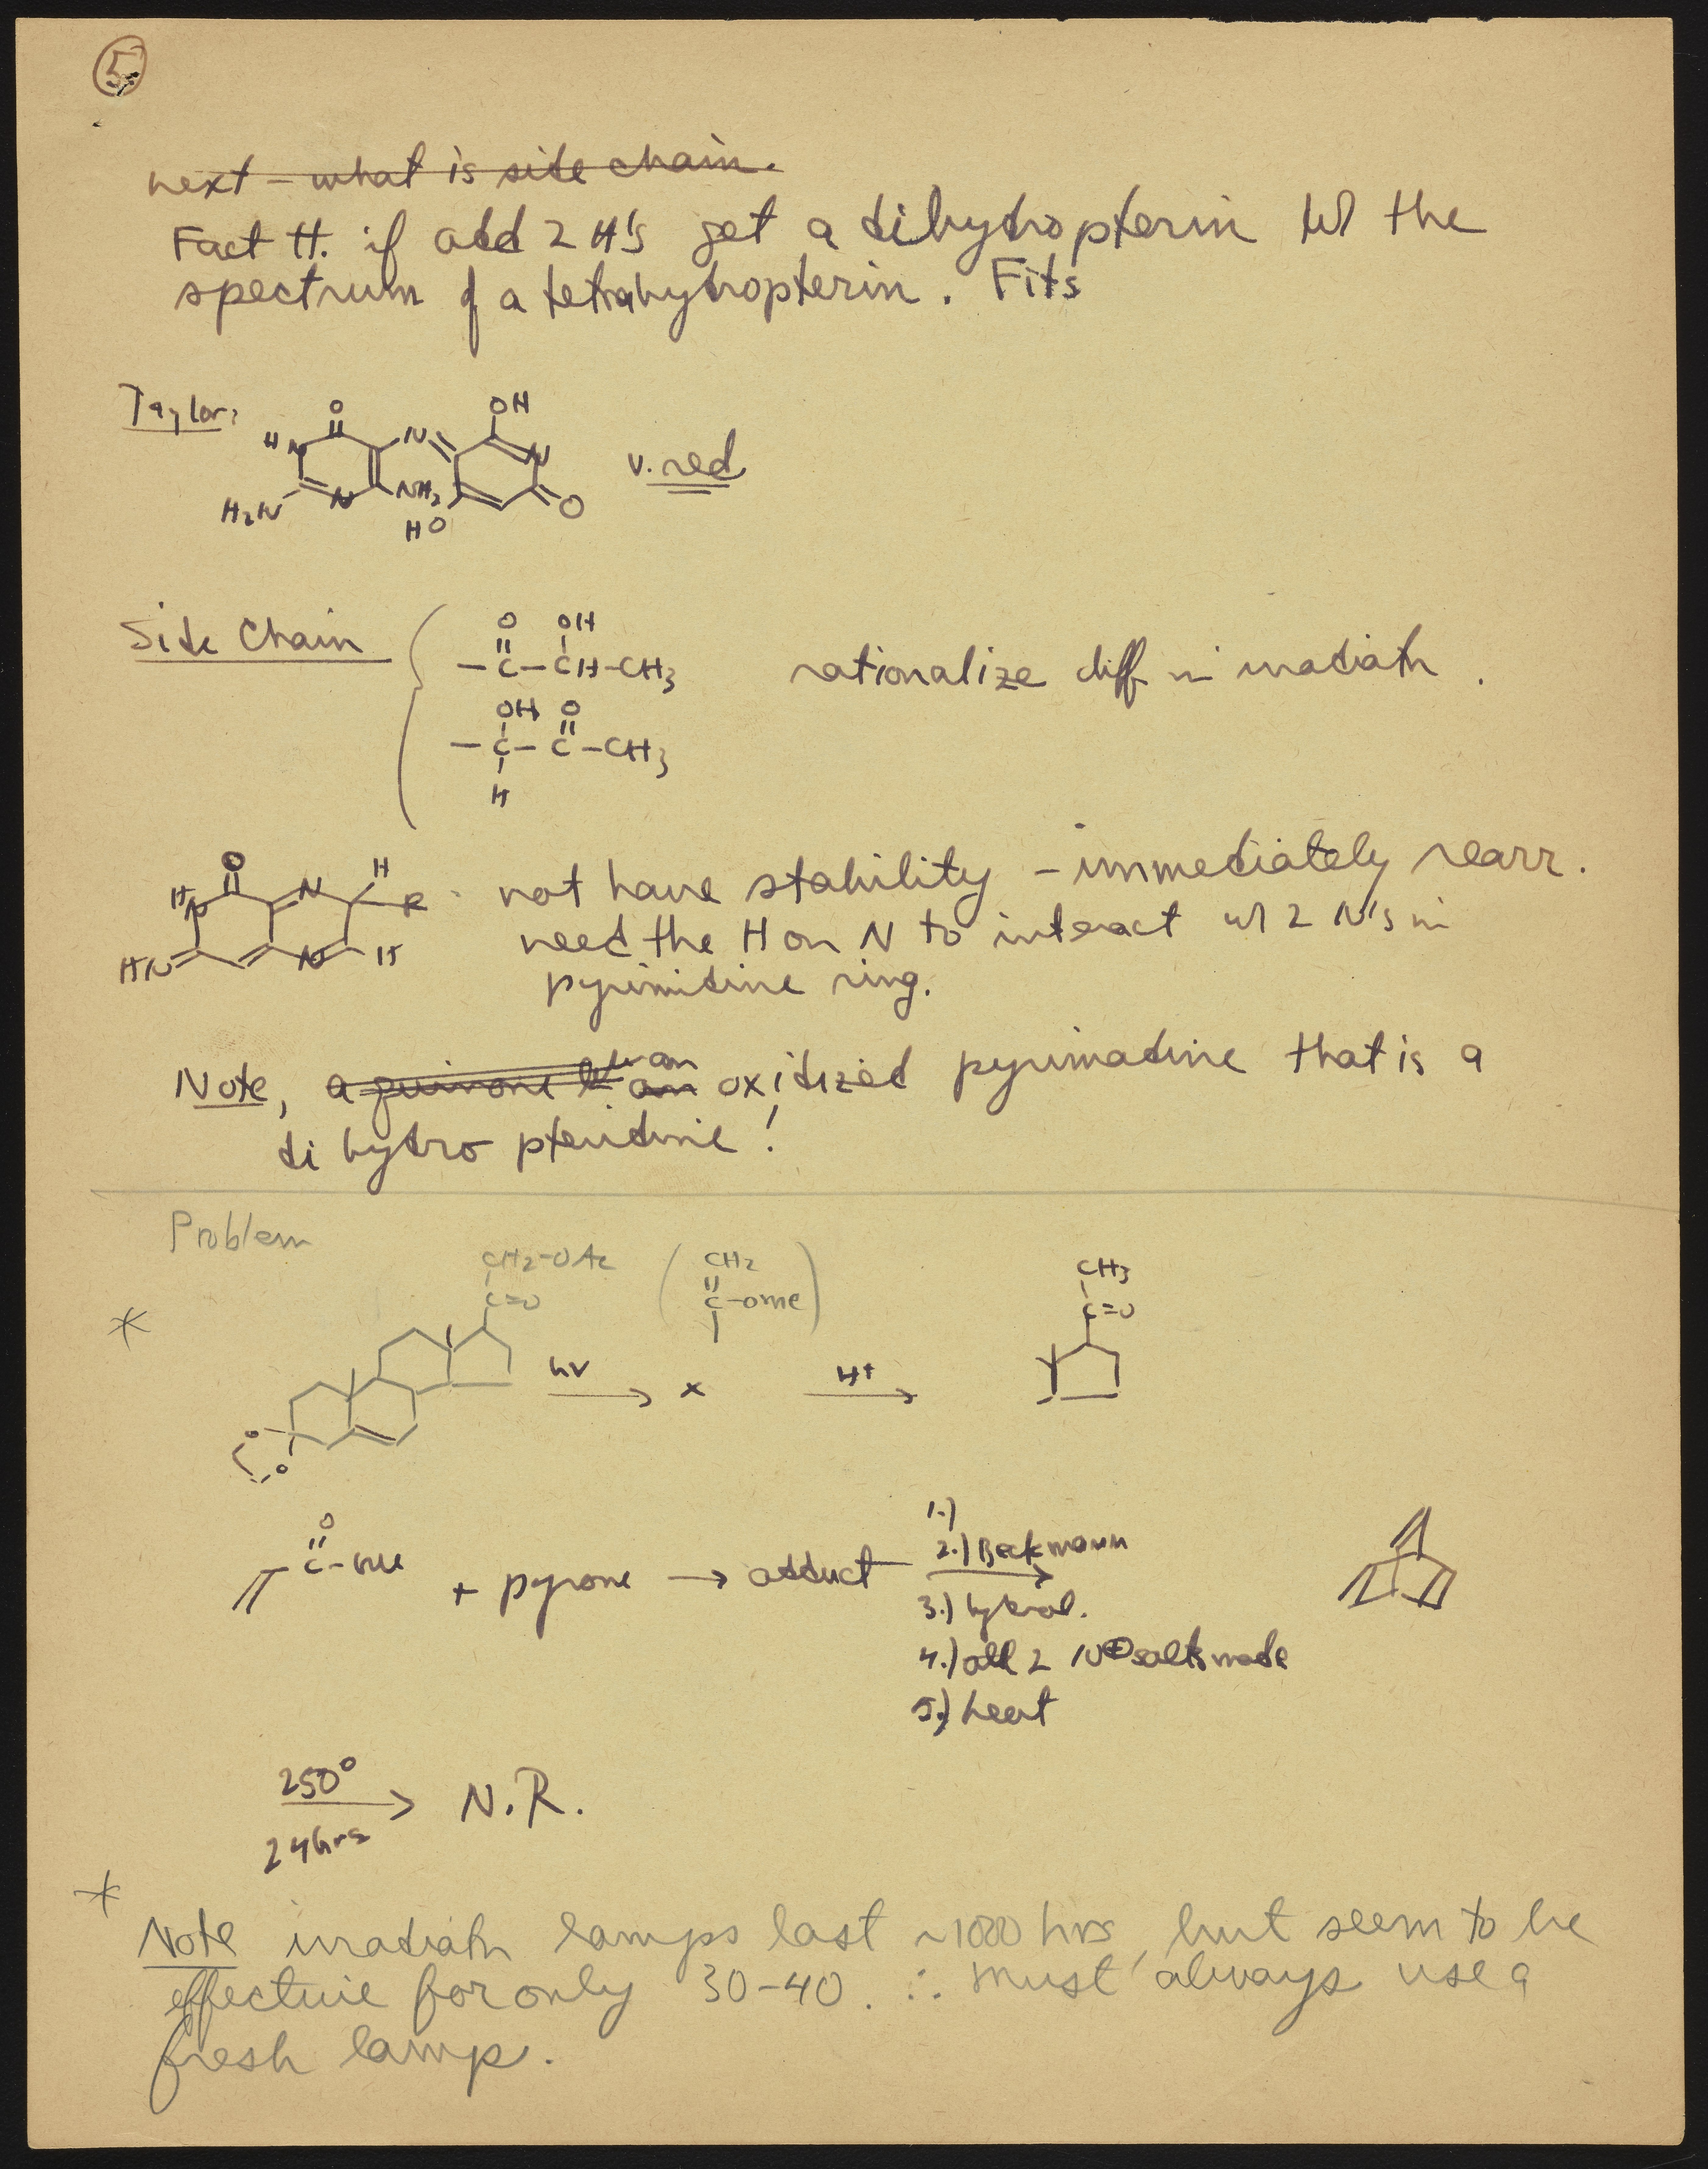 5
next - what is side chain.
Fact H. if add 2 H's get a dihydropterin w/ the
spectrum of a tetrahydropterin. Fits
Taylor:
O
OH
H N
N
N
H2N
N
NH2
HO
O
v. red
Side Chain
O OH
- C - CH - CH3
rationalize diff in irradiatn.
OH O
- C - C - CH3
H
O
H
HN
N
R
not have stability - immediately rearr.
need the H on N to interact w/ 2 N's in
HN
N
H
pyrimidine ring.
Note, a quinone w an oxidized pyrimadine that is a
dihydro pteridine!
Problem
CH2-OAc
C=O
( CH2
C-OMe )
CH3
C=O
hν
x
H+
O
O
O
C-Me
+ pyrone → adduct
1.)
2.) Beckmann
3.) hydrol.
4.) all 2 N⊕ salts made
5.) heat
250°
24 hrs
N.R.
Note irradiatn lamps last ~1000 hrs, but seem to be
effective for only 30-40. ∴ must always use a
fresh lamp.